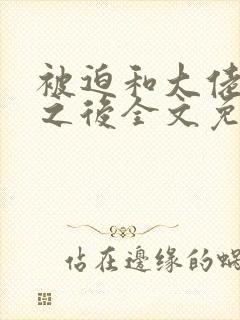 被迫和大佬
之後全文免
佔在邊緣的蝸